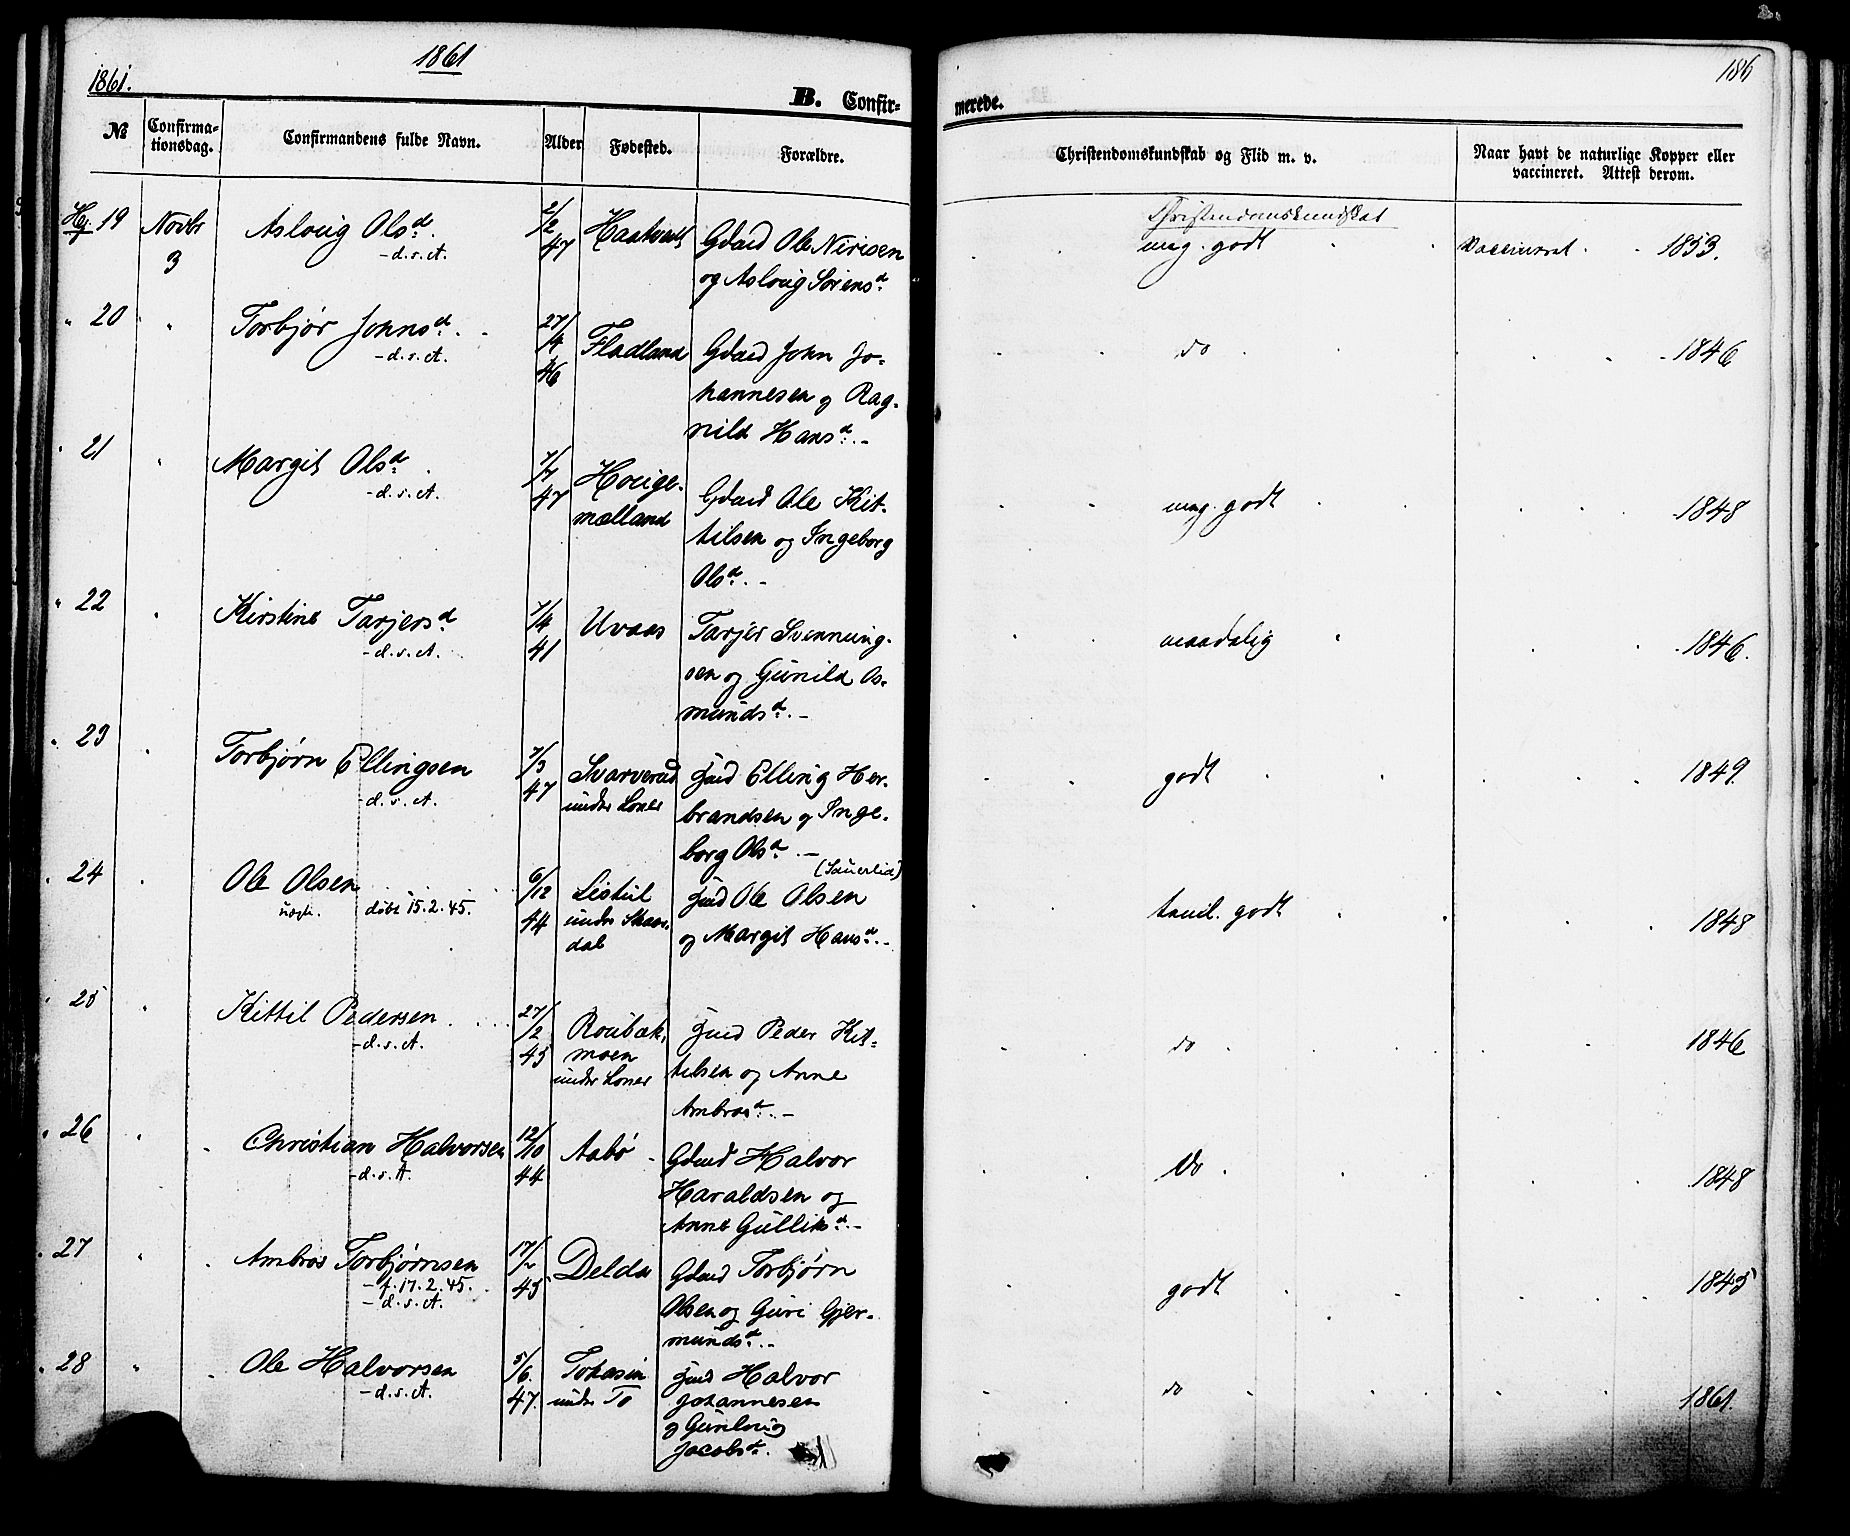 1861
1861.
186
B. Confir-
merede.
№
Confirma-
tionsdag.
Confirmandens fulde Navn.
Alder
Fødested.
Forældre.
Christendomskundskab og Flid m. v.
Naar havt de naturlige Kopper eller
vaccineret. Attest derom.
19 Novbr
3
Asloug Olsd.
-d.s.A.
2/2
47
Gdmd Ole Nirisen
og Asloug Sørensd.
Christendomskundskab
meg. godt
Vaccineret 1853.
" 20 "
Torbjør Johnsd.
-d.s.A.
27/4
46
Fladland
Gdmd John Jo-
hannesen og Rag-
nild Hansd. -
do
1846
" 21 "
Margit Olsd.
-d.s.A.
7/7
47
Houge-
mælland
Gdmd Ole Kit-
tilsen og Ingeborg
Olsd. -
meg. godt
1848
" 22 "
Kirstine Tarjersd.
-d.s.A.
7/4
41
Uvaas
Tarjer Svenning-
sen og Gunild Os-
mundsd. -
maadelig
1846.
" 23 "
Torbjørn Ellingsen
-d.s.A.
7/3
47
Svarverud
under Loner
Jmd Elling Her-
brandsen og Inge-
borg Olsd. -
godt
1849.
" 24 "
Ole Olsen
uegte. døbt 15.2.45.
6/12
44
Listul
under Skaar-
dal
(Sauerlid)
Jmd Ole Olsen
og Margit Hansd. -
temil. godt
1848
" 25 "
Kittil Pedersen
-d.s.A.
27/2
45
Roubæk-
moen
under Loner
Jmd Peder Kit-
tilsen og Anne
Ambrosd. -
do
1846
" 26 "
Christian Halvorsen
-d.s.A.
12/10
44
Aabø
Gdmd Halvor
Haraldsen og
Anne Gulliksd. -
Do
1848
" 27 "
Ambros Torbjørnsen
-f. 17.2.45.
-d.s.A.
17/2
45
Delda
Gdmd Torbjørn
Olsen og Guri Gjer-
mundsd. -
godt
1845
" 28 "
Ole Halvorsen
-d.s.A.
5/6
47.
under To
Jmd Halvor
Johannesen
og Gunloug
Jacobsd.
do
1861.